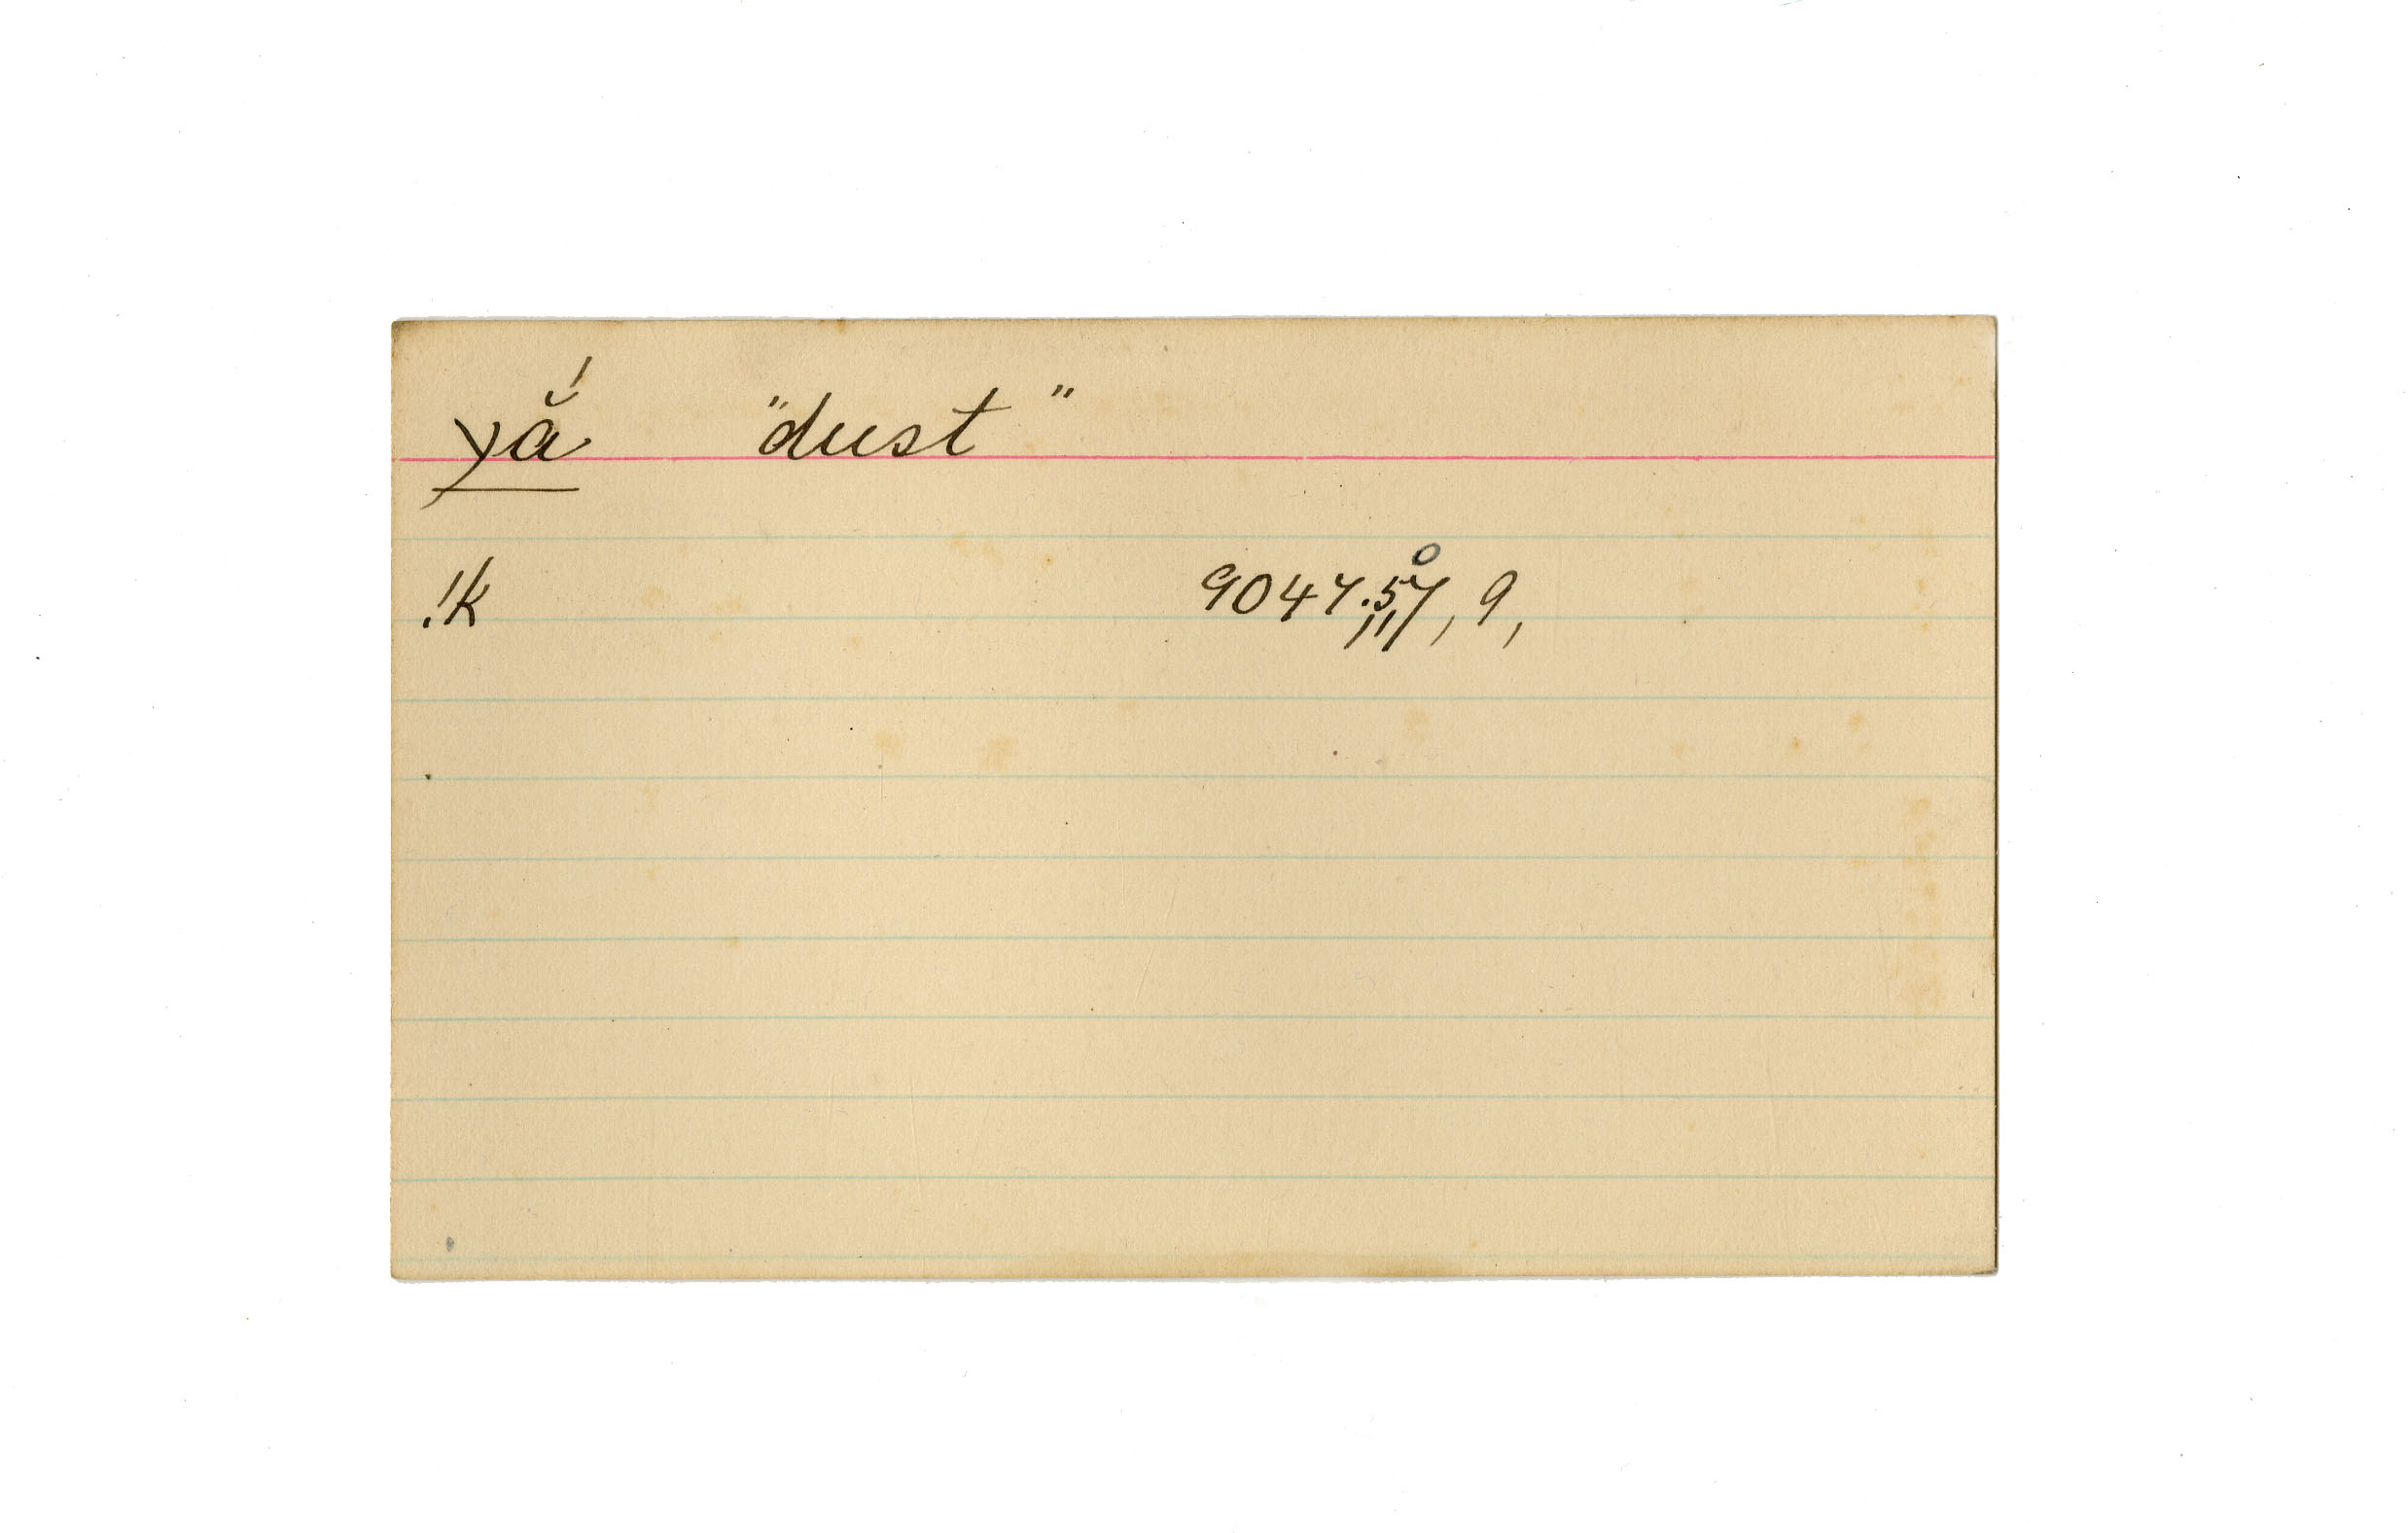 yắ "dust"
!k 9047.57, 9,